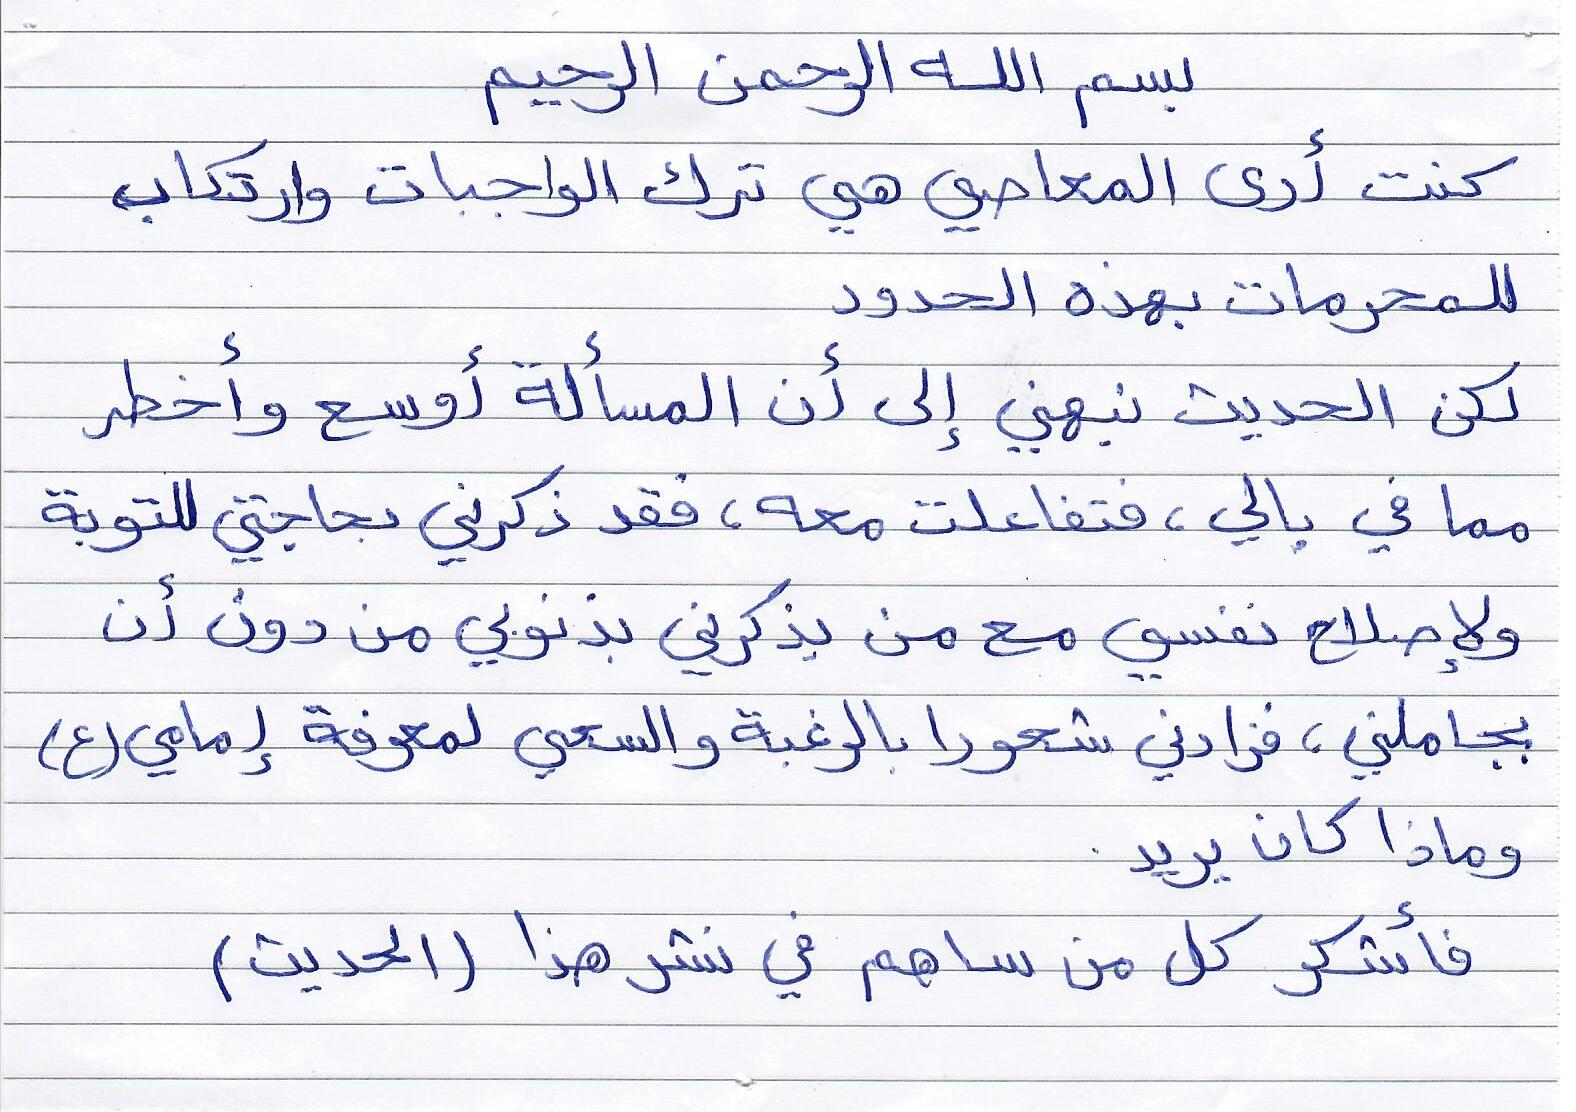 بسم الله الرحمن الرحيم
كنت أرى المعاصي هي ترك الواجبات وارتكاب
للمحرمات بهذه الحدود
لكن الحديث نبهني إلى أن المسألة أوسع وأخطر
مما في بالي، فتفاعلت معه، فقد ذكرني بحاجتي للتوبة
ولإصلاح نفسي مع من يذكرني بذنوبي من دون أن
يجاملني، فزادني شعورا بالرغبة والسعي لمعرفة إمامي (ع)
وماذا كان يريد.
فأشكر كل من ساهم في نشر هذا (الحديث)